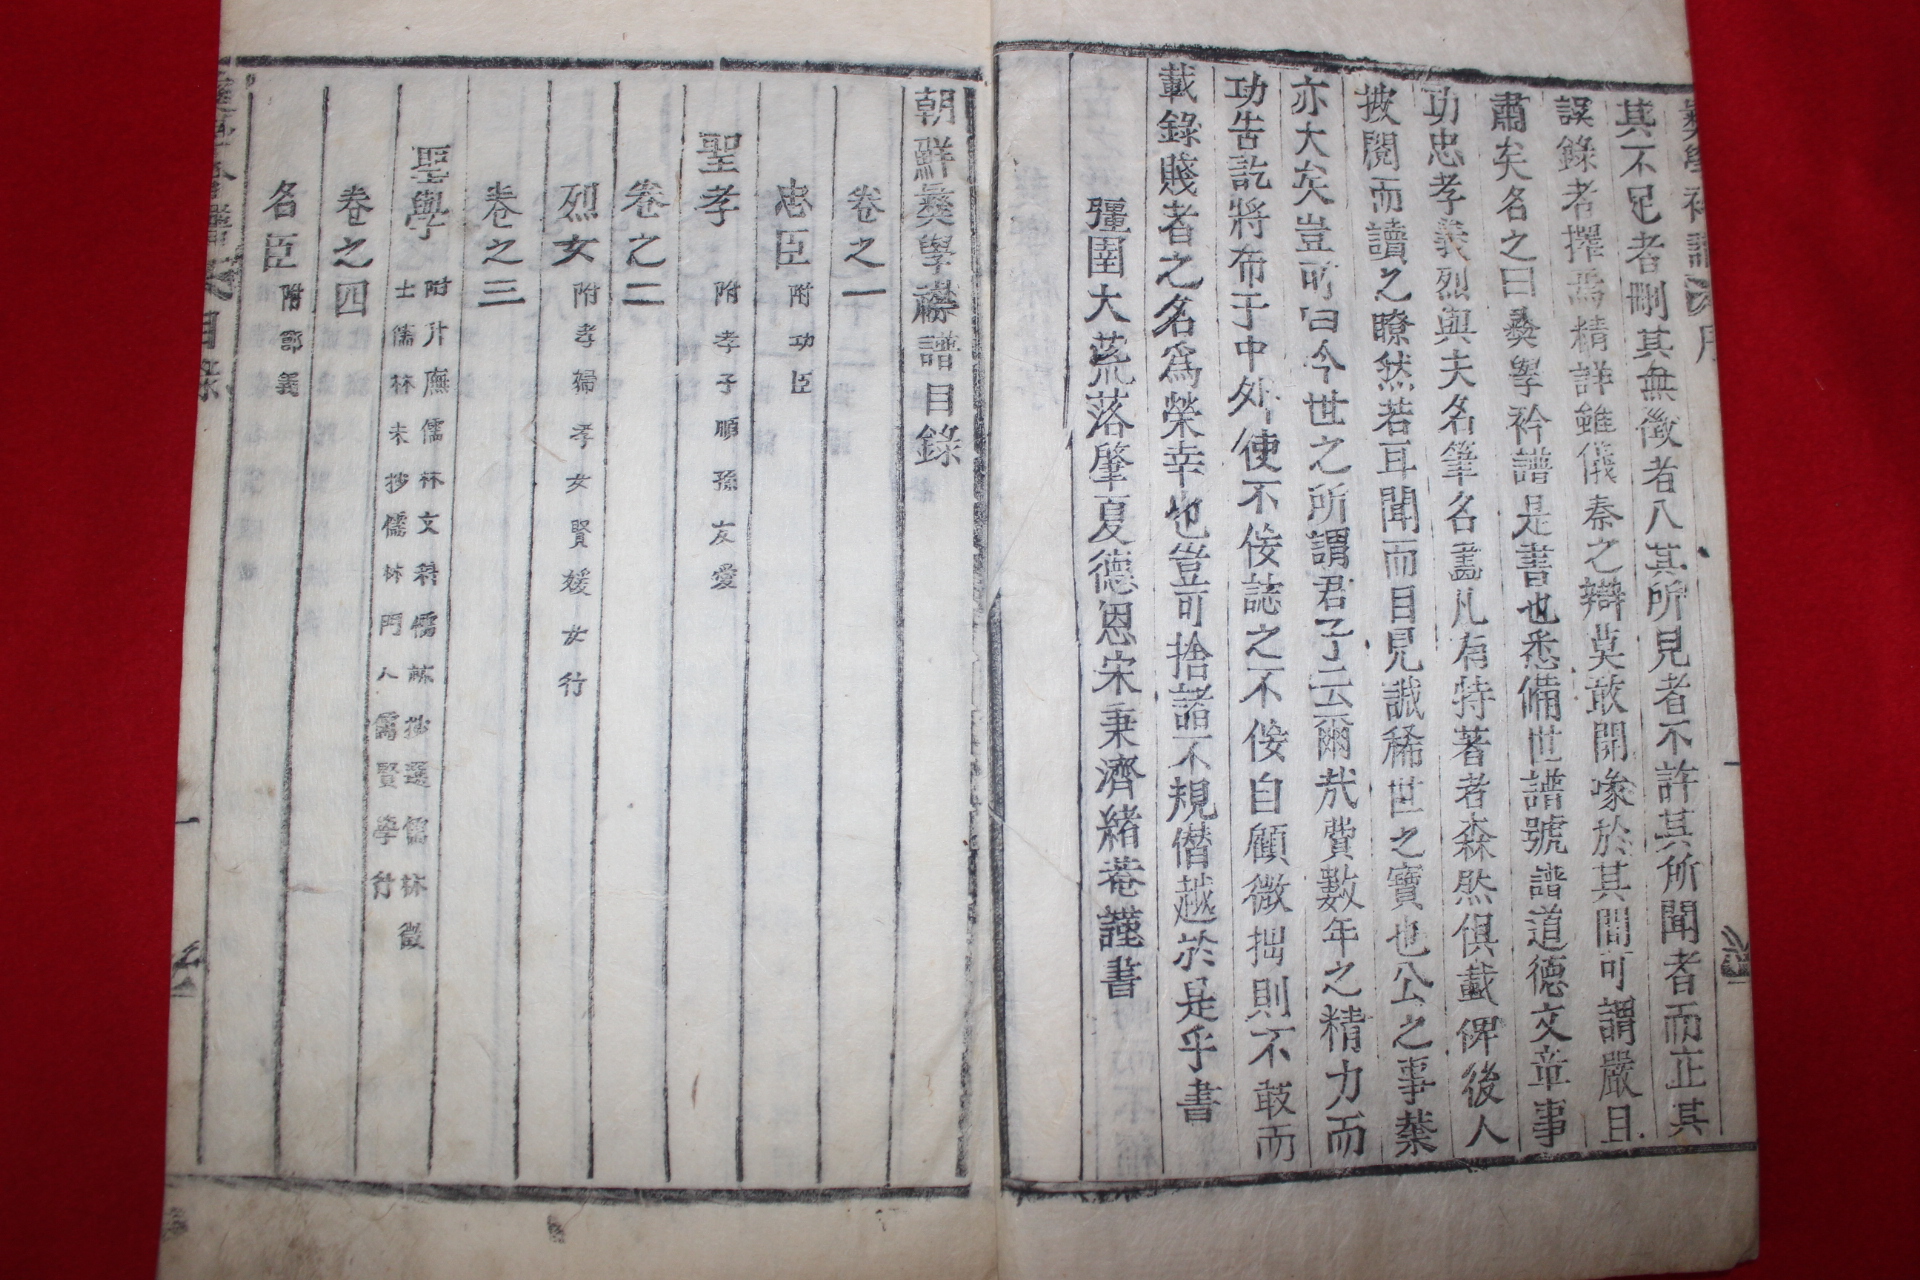 其不足者刪其無徵者八其所見者不許其所聞者而正其
誤錄者擇焉精詳雖儀秦之辯莫敢開喙於其間可謂嚴且
肅矣名之曰彜學衿譜是書也悉備世譜號譜道德文章事
功忠孝義烈與夫名筆名畵凡有特著者森然俱載俾後人
披閱而讀之瞭然若耳聞而目見誠稀世之寶也公之事業
亦大矣豈可曰今世之所謂君子云爾哉費數年之精力而
功告訖將布于中外使不佞誌之不佞自顧微拙則不敢而
載錄賤者之名爲榮幸也豈可捨諸不規僭越於是乎書
彊圉大荒落肇夏德恩宋秉濟緖菴謹書
朝鮮彜學襟譜目錄
卷之一
忠臣 附功臣
聖孝 附孝子順孫友愛
卷之二
烈女 附孝婦孝女賢媛女行
卷之三
聖學 附升廡儒林文科儒林抄選儒林徵
士儒林未抄儒林門人儒賢學行
卷之四
名臣 附節義